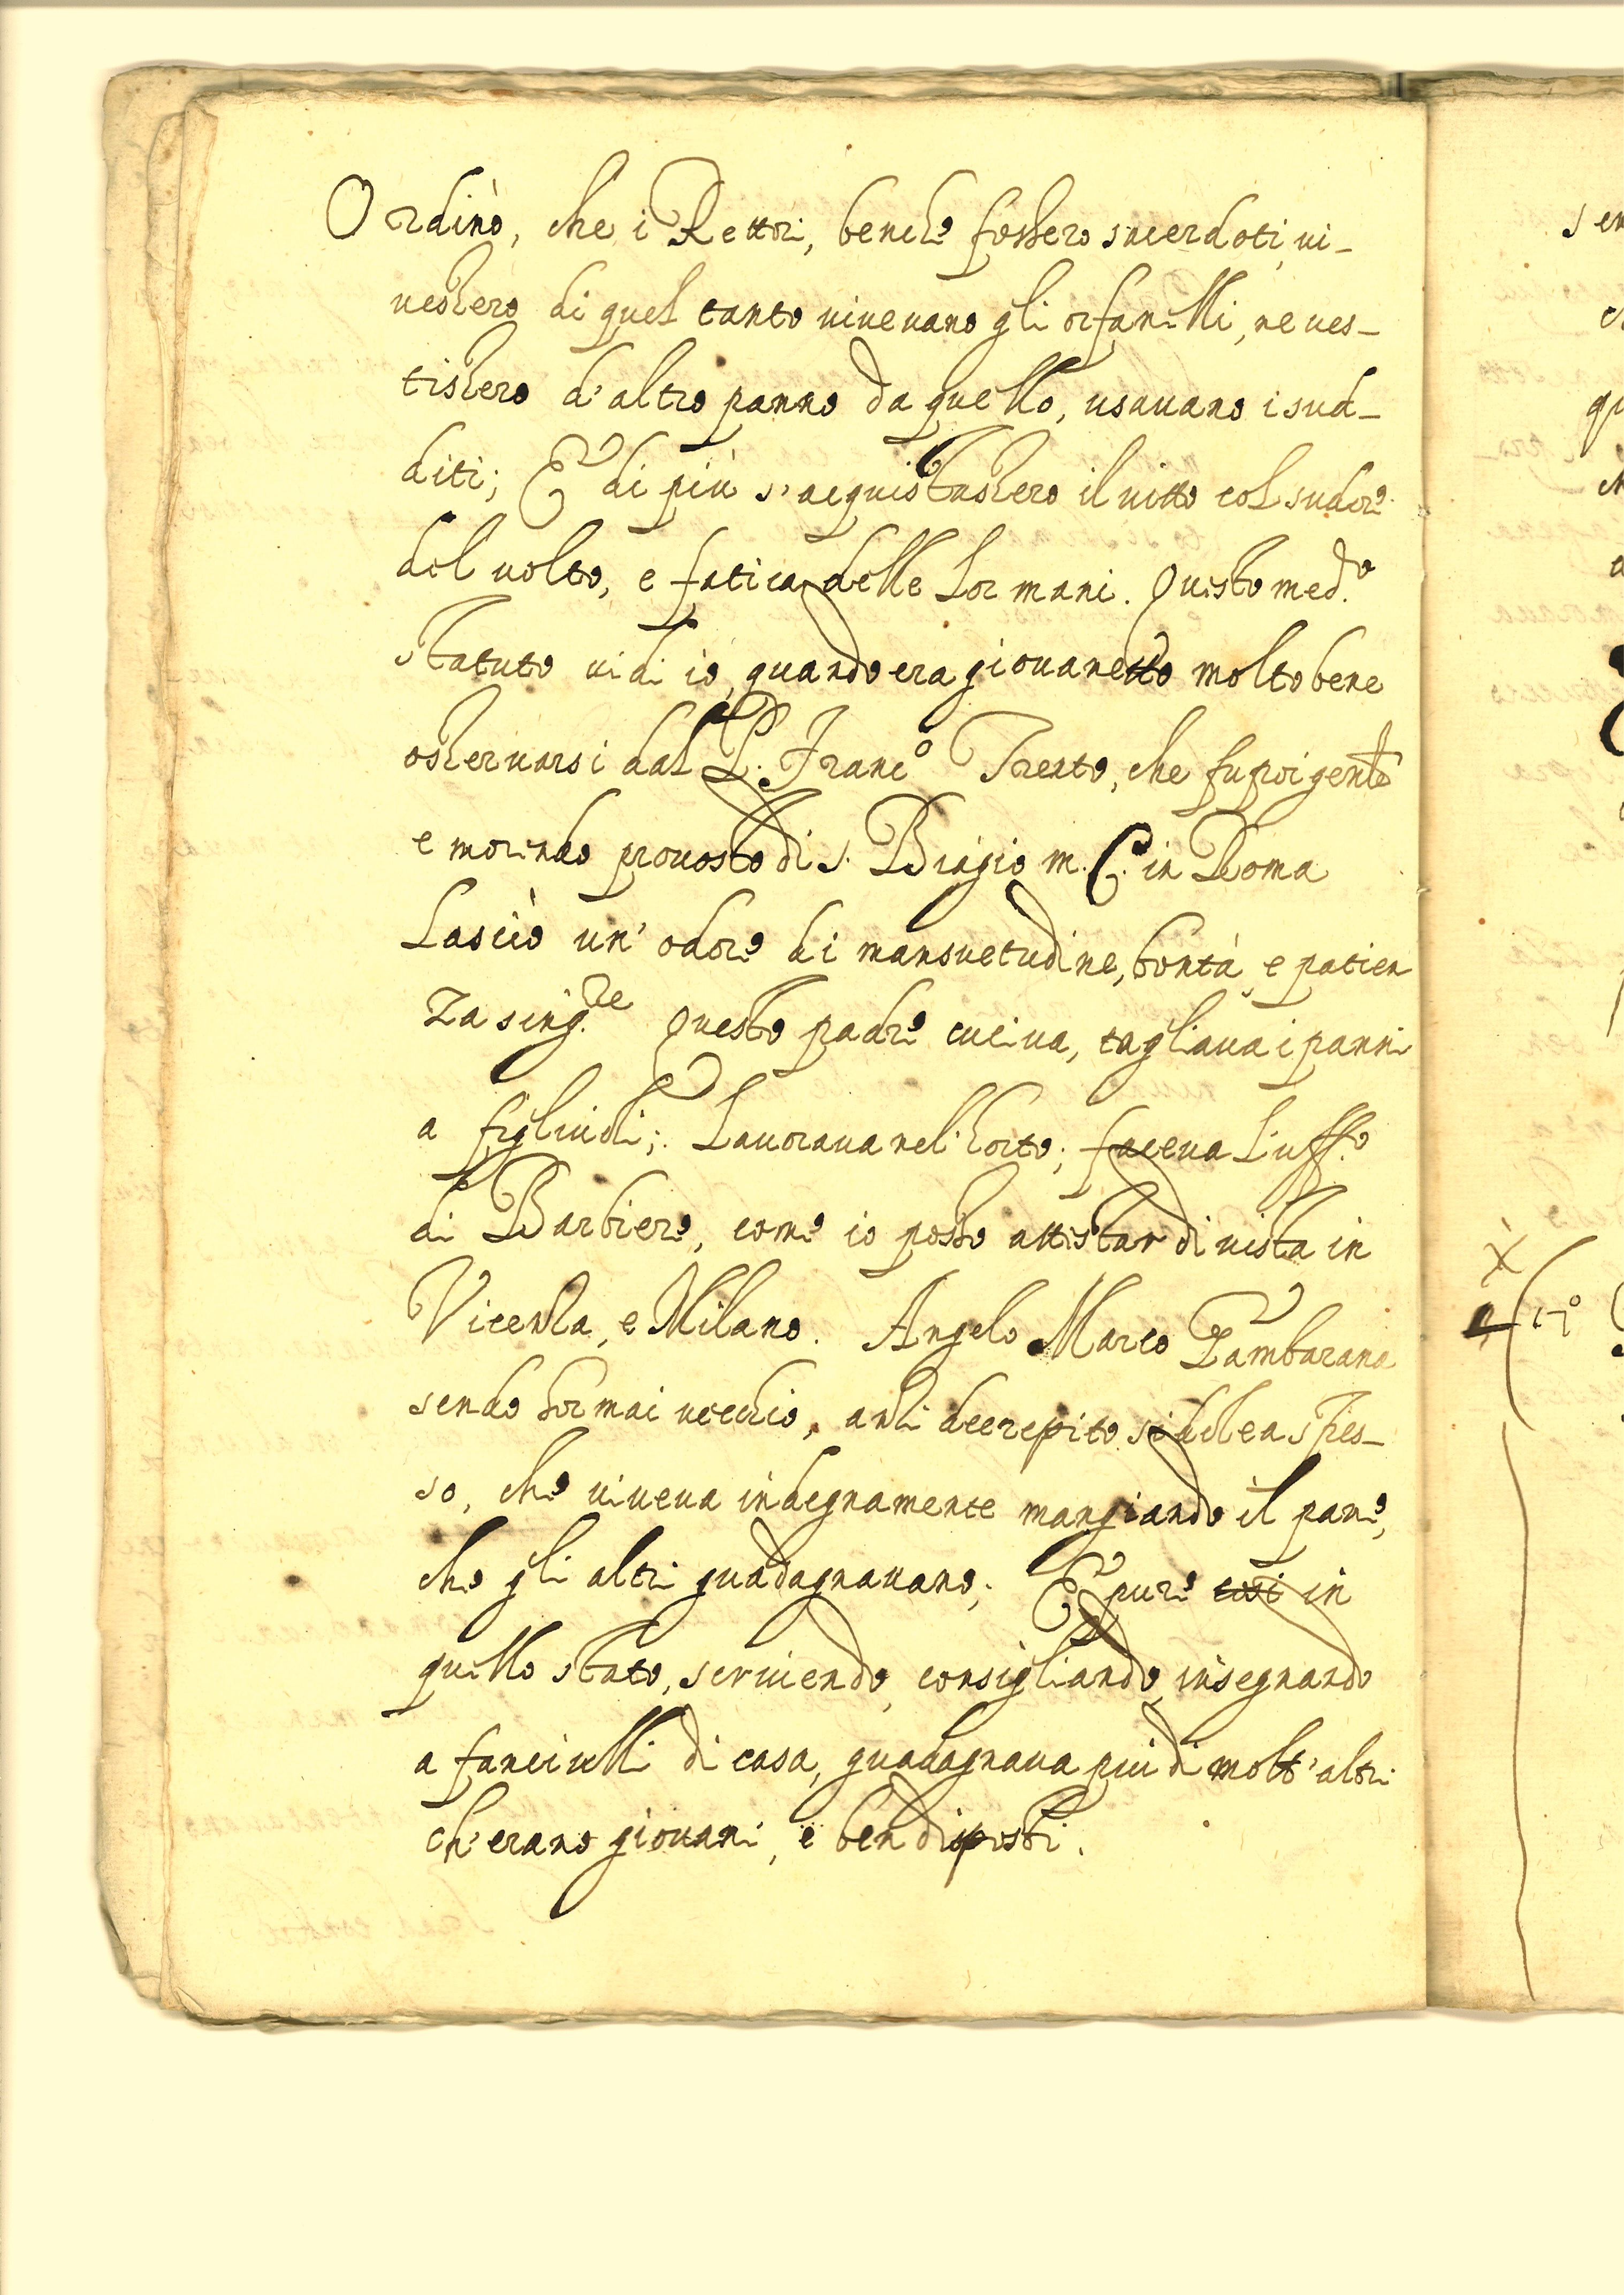 Ordinò, che i Rettori, benche fossero sacerdoti, ui-
uessero di quel tanto uiueuano gli orfanelli, ne ues-
tissero d'altro panno da quello, usauano i sud-
diti; E di più s'acquistassero il uitto col sudore
del uolto, e fatica delle lor mani. Questo med.o
statuto uidi io, quando era giouanetto molto bene
osseruarsi dal P. Franc.o Trento, che fu poi gen.le
e morendo prouosto di S. Biagio m. C. in Roma
Lasciò un' odore di mansuetudine, bontà, e patien
za sing.re Questo padre cuciua, tagliaua i panni
a figliuoli; Lauoraua nel' horto; faceua l'uff.o
di Barbiere, come io posso attestar di uista in
Vicenza, e Milano. Angelo Marco Gambarana
sendo hormai uecchio, anzi decrepito si dolea spes-
so, che uiueua indegnamente mangiando il pane,
che gli altri guadagnauano; E pure così in
quello stato, seruiendo, consigliando, insegnando
a fanciulli di casa, guadagnaua piu di molt'altri
ch'erano giouani, e ben disposti.